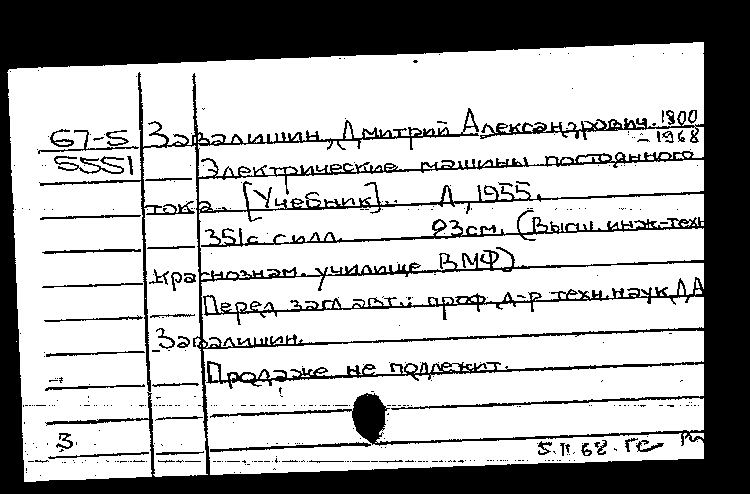 67-5 Завалишин, Дмитрий Александрович. 1900
– 1968
5551 Электрические машины постоянного
тока. [Учебник]. Л, 1955.
351с с илл. 23см. (Высш. инж.-техн
краснознам. училище ВМФ).
Перед загл. авт.: проф. д-р техн. наук Д А
Завалишин.
Продаже не подлежит.
3
5.II.68. ГС